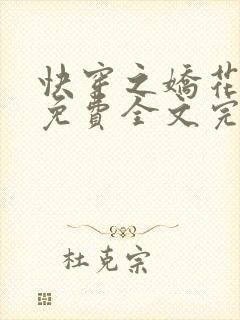 快穿之嬌花
免費全文完
杜克宗